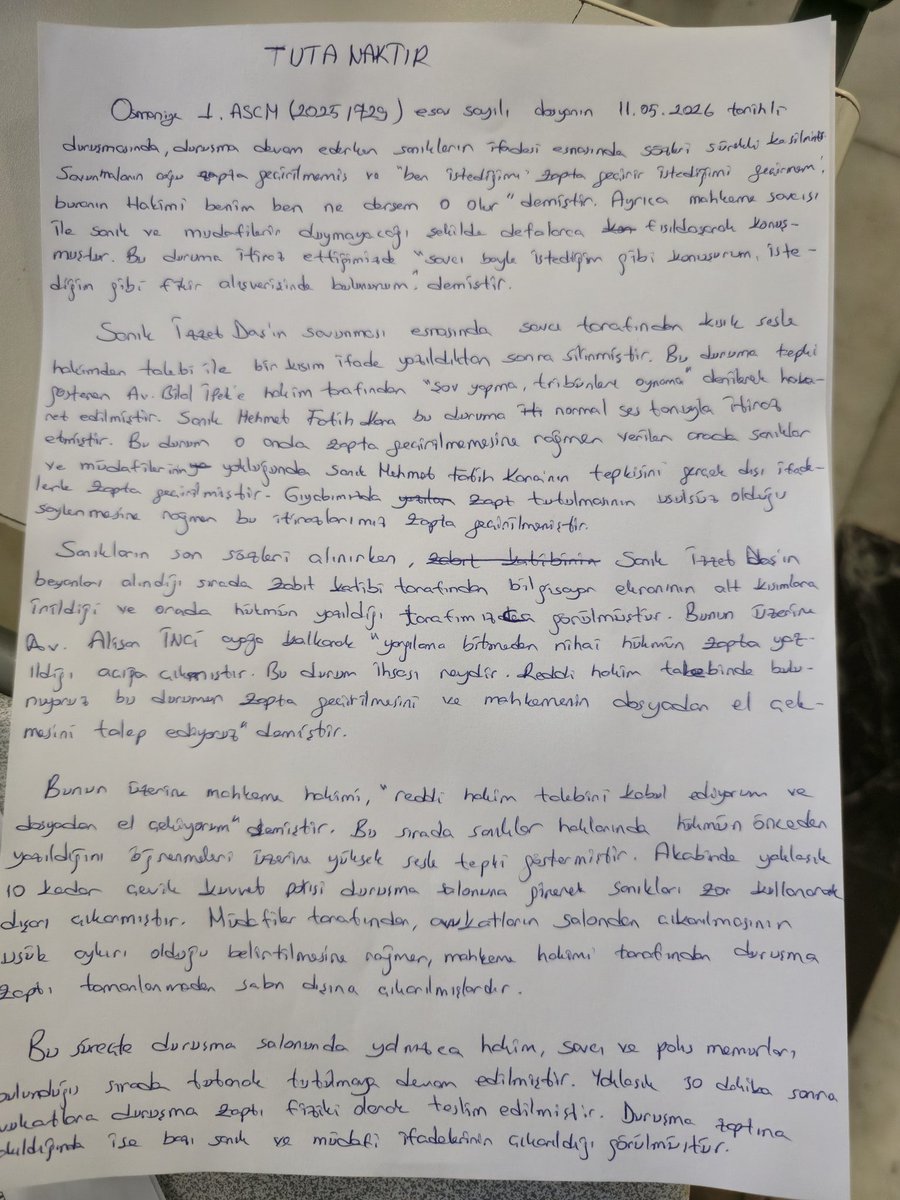 TUTANAKTIR
Osmaniye 1. ASCM (2025/729) esas sayılı dosyanın 11.05.2026 tarihli
duruşmasında, duruşma devam ederken sanıkların ifadesi esnasında sözleri sürekli kesilmiş
Savunmaların çoğu zapta geçirilmemiş ve "ben istediğimi zapta geçirir istediğimi geçirmem,
buranın Hakimi benim ben ne dersem o olur" demiştir. Ayrıca mahkeme savcısı
ile sanık ve müdafilerin duymayacağı şekilde defalarca fısıldaşarak konuş-
muştur. Bu duruma itiraz ettiğimizde "savcı boyle istediğim gibi konuşurum, iste-
diğim gibi fikir alışverişinde bulunurum." demiştir.
Sanık İzzet Daş'ın savunması esnasında savcı tarafından kısık sesle
hakimden talebi ile bir kısım ifade yazıldıktan sonra silinmiştir. Bu duruma tepki
gösteren Av. Bilal İpek'e hakim tarafından "şov yapma, tribünlere oynama" denilerek haka-
ret edilmiştir. Sanık Mehmet Fatih Kara bu duruma normal ses tonuyla itiraz
etmiştir. Bu durum o anda zapta geçirilmemesine rağmen verilen arada sanıklar
ve müdafilerin yokluğunda sanık Mehmet Fatih Kara'nın tepkisini gerçek dışı ifade-
lerle zapta geçirilmiştir. Gıyabımızda zapt tutulmasının usulsüz olduğu
söylenmesine rağmen bu itirazlarımız zapta geçirilmemiştir.
Sanıkların son sözleri alınırken, zabıt katibinin Sanık İzzet Daş'ın
beyanları alındığı sırada zabıt katibi tarafından bilgisayar ekranının alt kısımlara
inildiği ve orada hükmün yazıldığı tarafımızca görülmüştür. Bunun üzerine
Av. Alişan İNCİ ayağa kalkarak "yargılama bitmeden nihai hükmün zapta yaz-
ıldığı açığa çıkmıştır. Bu durum ihsası reydir. Reddi hakim talebinde bulu-
nuyoruz bu durumun zapta geçirilmesini ve mahkemenin dosyadan el çek-
mesini talep ediyoruz" demiştir.
Bunun üzerine mahkeme hakimi, "reddi hakim talebini kabul ediyorum ve
dosyadan el çekiyorum" demiştir. Bu sırada sanıklar haklarında hükmün önceden
yazıldığını öğrenmeleri üzerine yüksek sesle tepki göstermiştir. Akabinde yaklaşık
10 kadar çevik kuvvet polisi duruşma salonuna girerek sanıkları zor kullanarak
dışarı çıkarmıştır. Müdafiler tarafından, avukatların salondan çıkarılmasının
usüle aykırı olduğu belirtilmesine rağmen, mahkeme hakimi tarafından duruşma
zaptı tamamlanmadan salon dışına çıkarılmışlardır.
Bu süreçte duruşma salonunda yalnızca hakim, savcı ve polis memurları
bulunduğu sırada tutanak tutulmaya devam edilmiştir. Yaklaşık 30 dakika sonra
avukatlara duruşma zaptı fiziki olarak teslim edilmiştir. Duruşma zaptına
bakıldığında ise bazı sanık ve müdafi ifadelerinin çıkarıldığı görülmüştür.